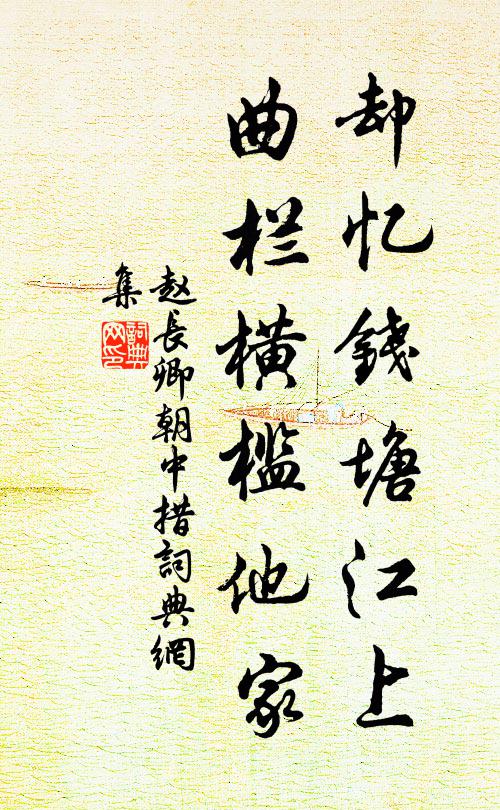 却忆錢塘江上
曲栏横槛他家
赵長卿朝中措詞典網
集
詞典
网印